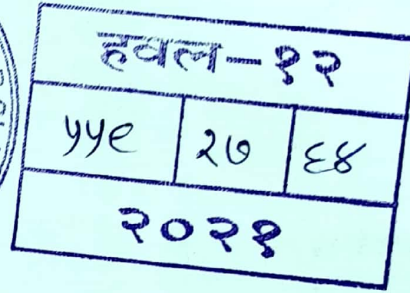 हवल-१२
५५९ २७ ६४
२०२१